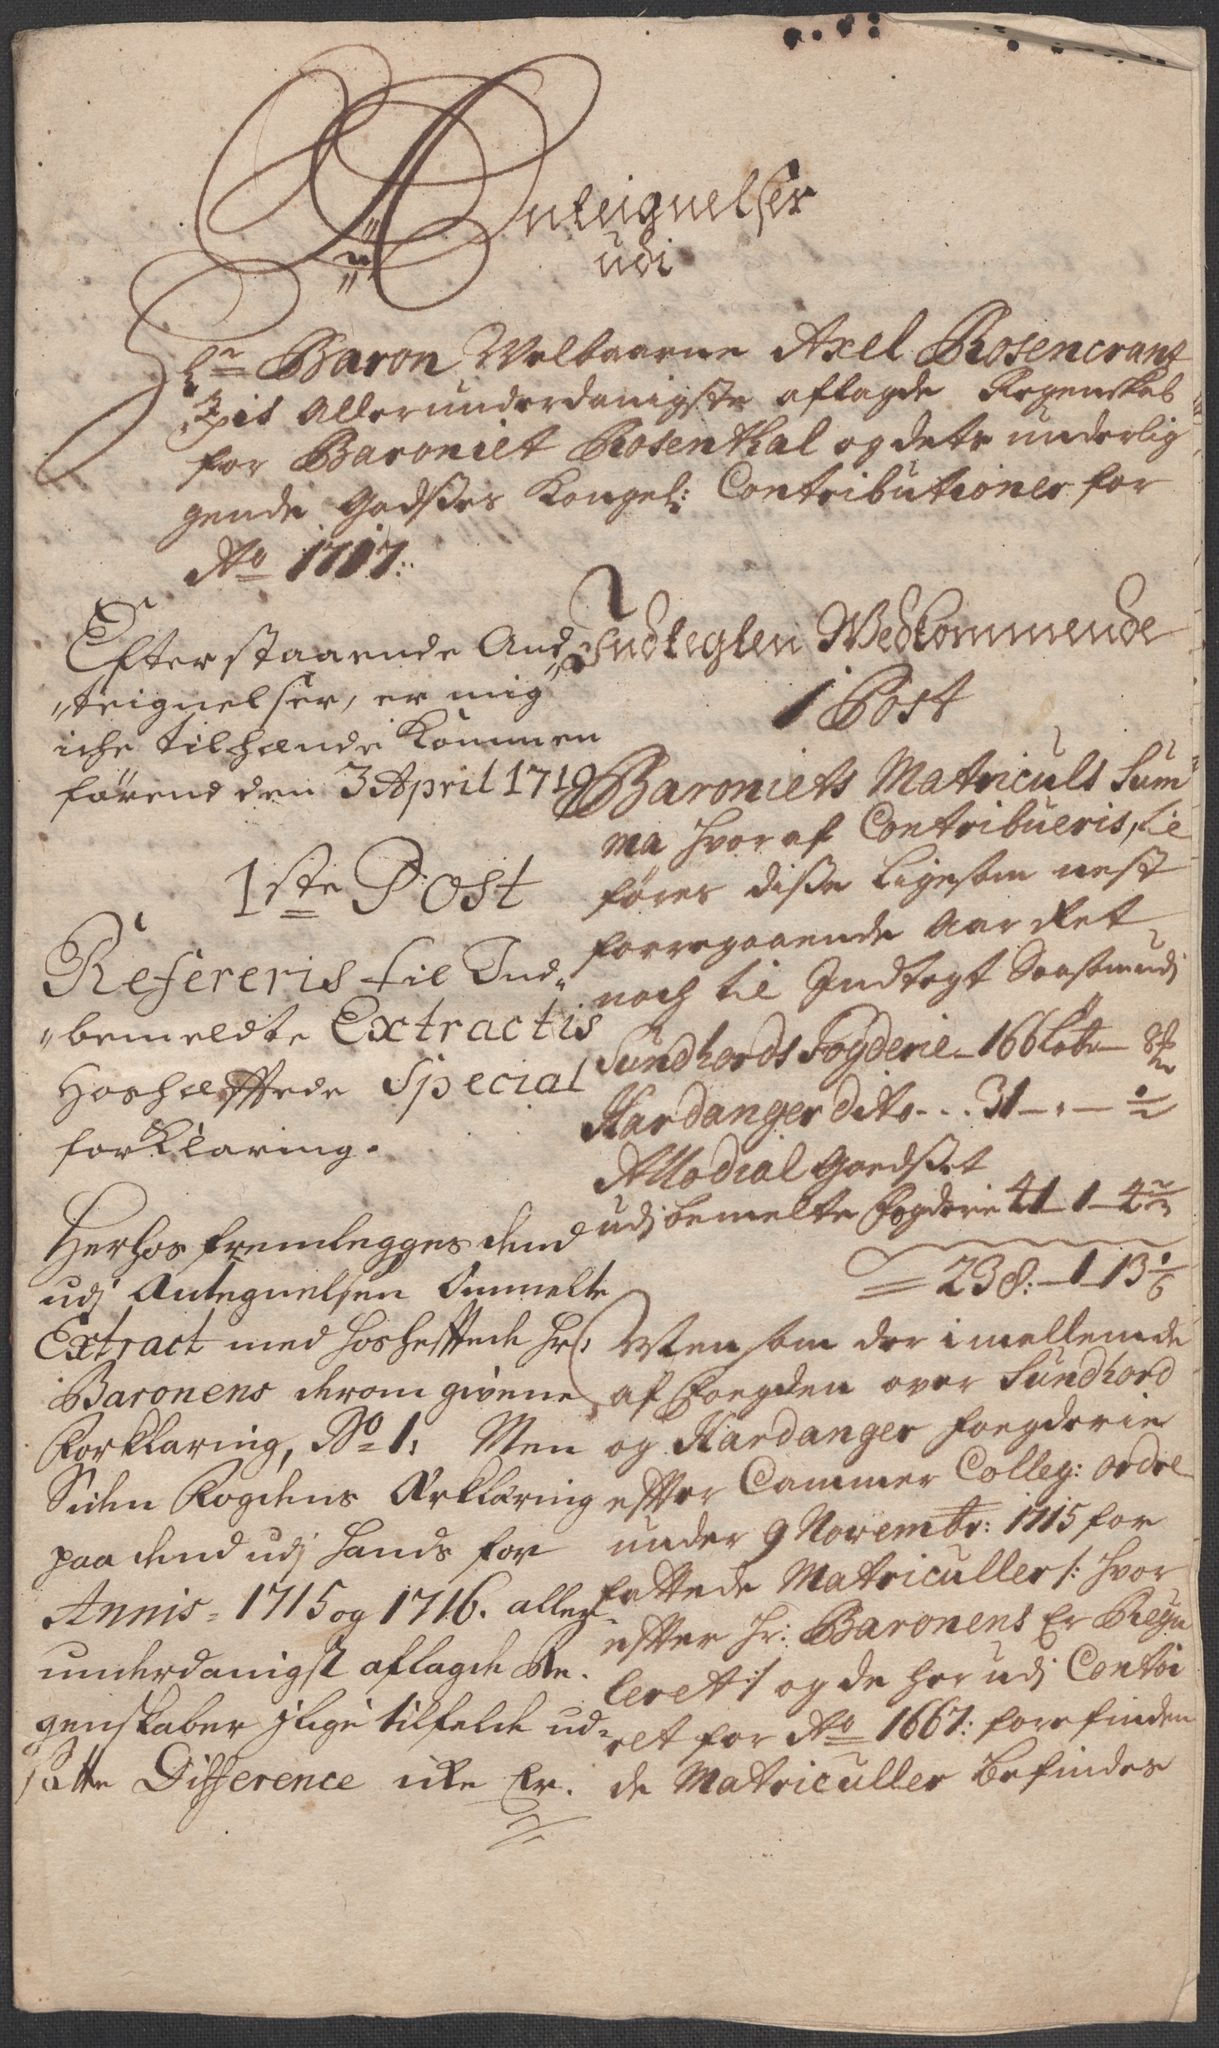 Anteignelser
udi
Hr Baron Velbaarne Axel Rosencrantz
Allerunderdanigste aflagde Regenskab
for Baroniet Rosenthal og dets underlig
gende Godsses Kongel: Contributioner for
Ao 1717:
Efterstaaende And
"teignelser, er mig
iche tilhænde kommen
førend den 3 April 1719
1ste Post
Refereris til Ind-
"bemeldte Extractis
Hoshæfftede Special
forklaring.
Herhos fremlegges dend
udj Antegnelsen Ommelte
Extract med hosheftede Hr:
Baronens derom givene
Forklaring, No 1: Men
Siden Fogdens Erklæring
paa dend udj hands for
Annis 1715 og 1716. aller
underdanigst aflagde Re-
genskaber j lige tilfelde ud-
satte Difference icke Er.
Indtegten Vedkommende
1 Post
Baroniets Matriculs Sum
ma hvoraf Contribueris, til
føres disse ligesom nest
forregaaende Aar Ret
noch til Indtegt Saasom udj
Sundhords Fogderie 166 Løb
Hardanger dito - - . 31 - . -
Allodial Goedsset
udj bemelte Fogderie 41 1 4
238: 1 13
Men som der imellem de
af Foegden over Sundhord
og Hardanger Foegderie
effter Cammer Colleg: ordre
under 9 Novembr: 1715 for
fattede Matriculler /: hvor
effter Hr: Baronens Er Regu
leret :/ og de her udj Contoi
ret for Ao 1667: forefinden
de Matriculler befindes